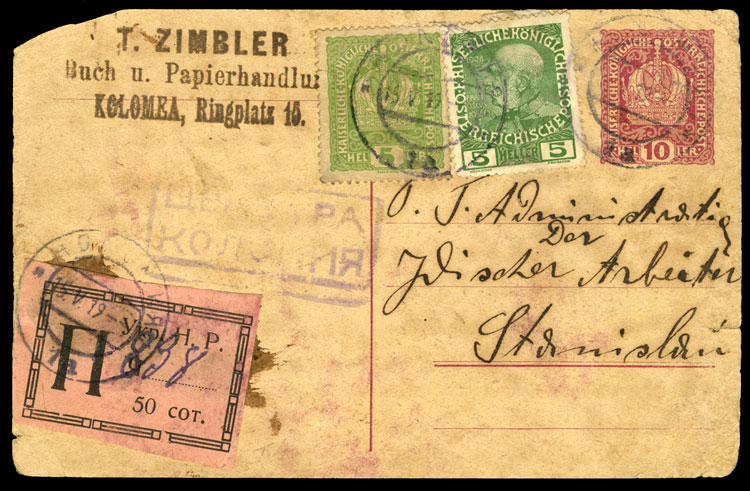 T. ZIMBLER
Buch u. Papierhandlu
KOLOMEA, Ringplatz 15.
KAISERLICHE KÖNIGLICHE ÖSTERREICHISCHE POST
HEL 5 LER
KAISERLICHE KÖNIGLICHE ÖSTERREICHISCHE POST
5 HELLER 5
KAISERLICHE KÖNIGLICHE ÖSTERREICHISCHE POST
HEL 10 LER
КОЛОМИЯ
P. T. Administratig
Der
Jdischer Arbeiter
Stanislau
Укр. Н. Р.
П
838
50 сот.